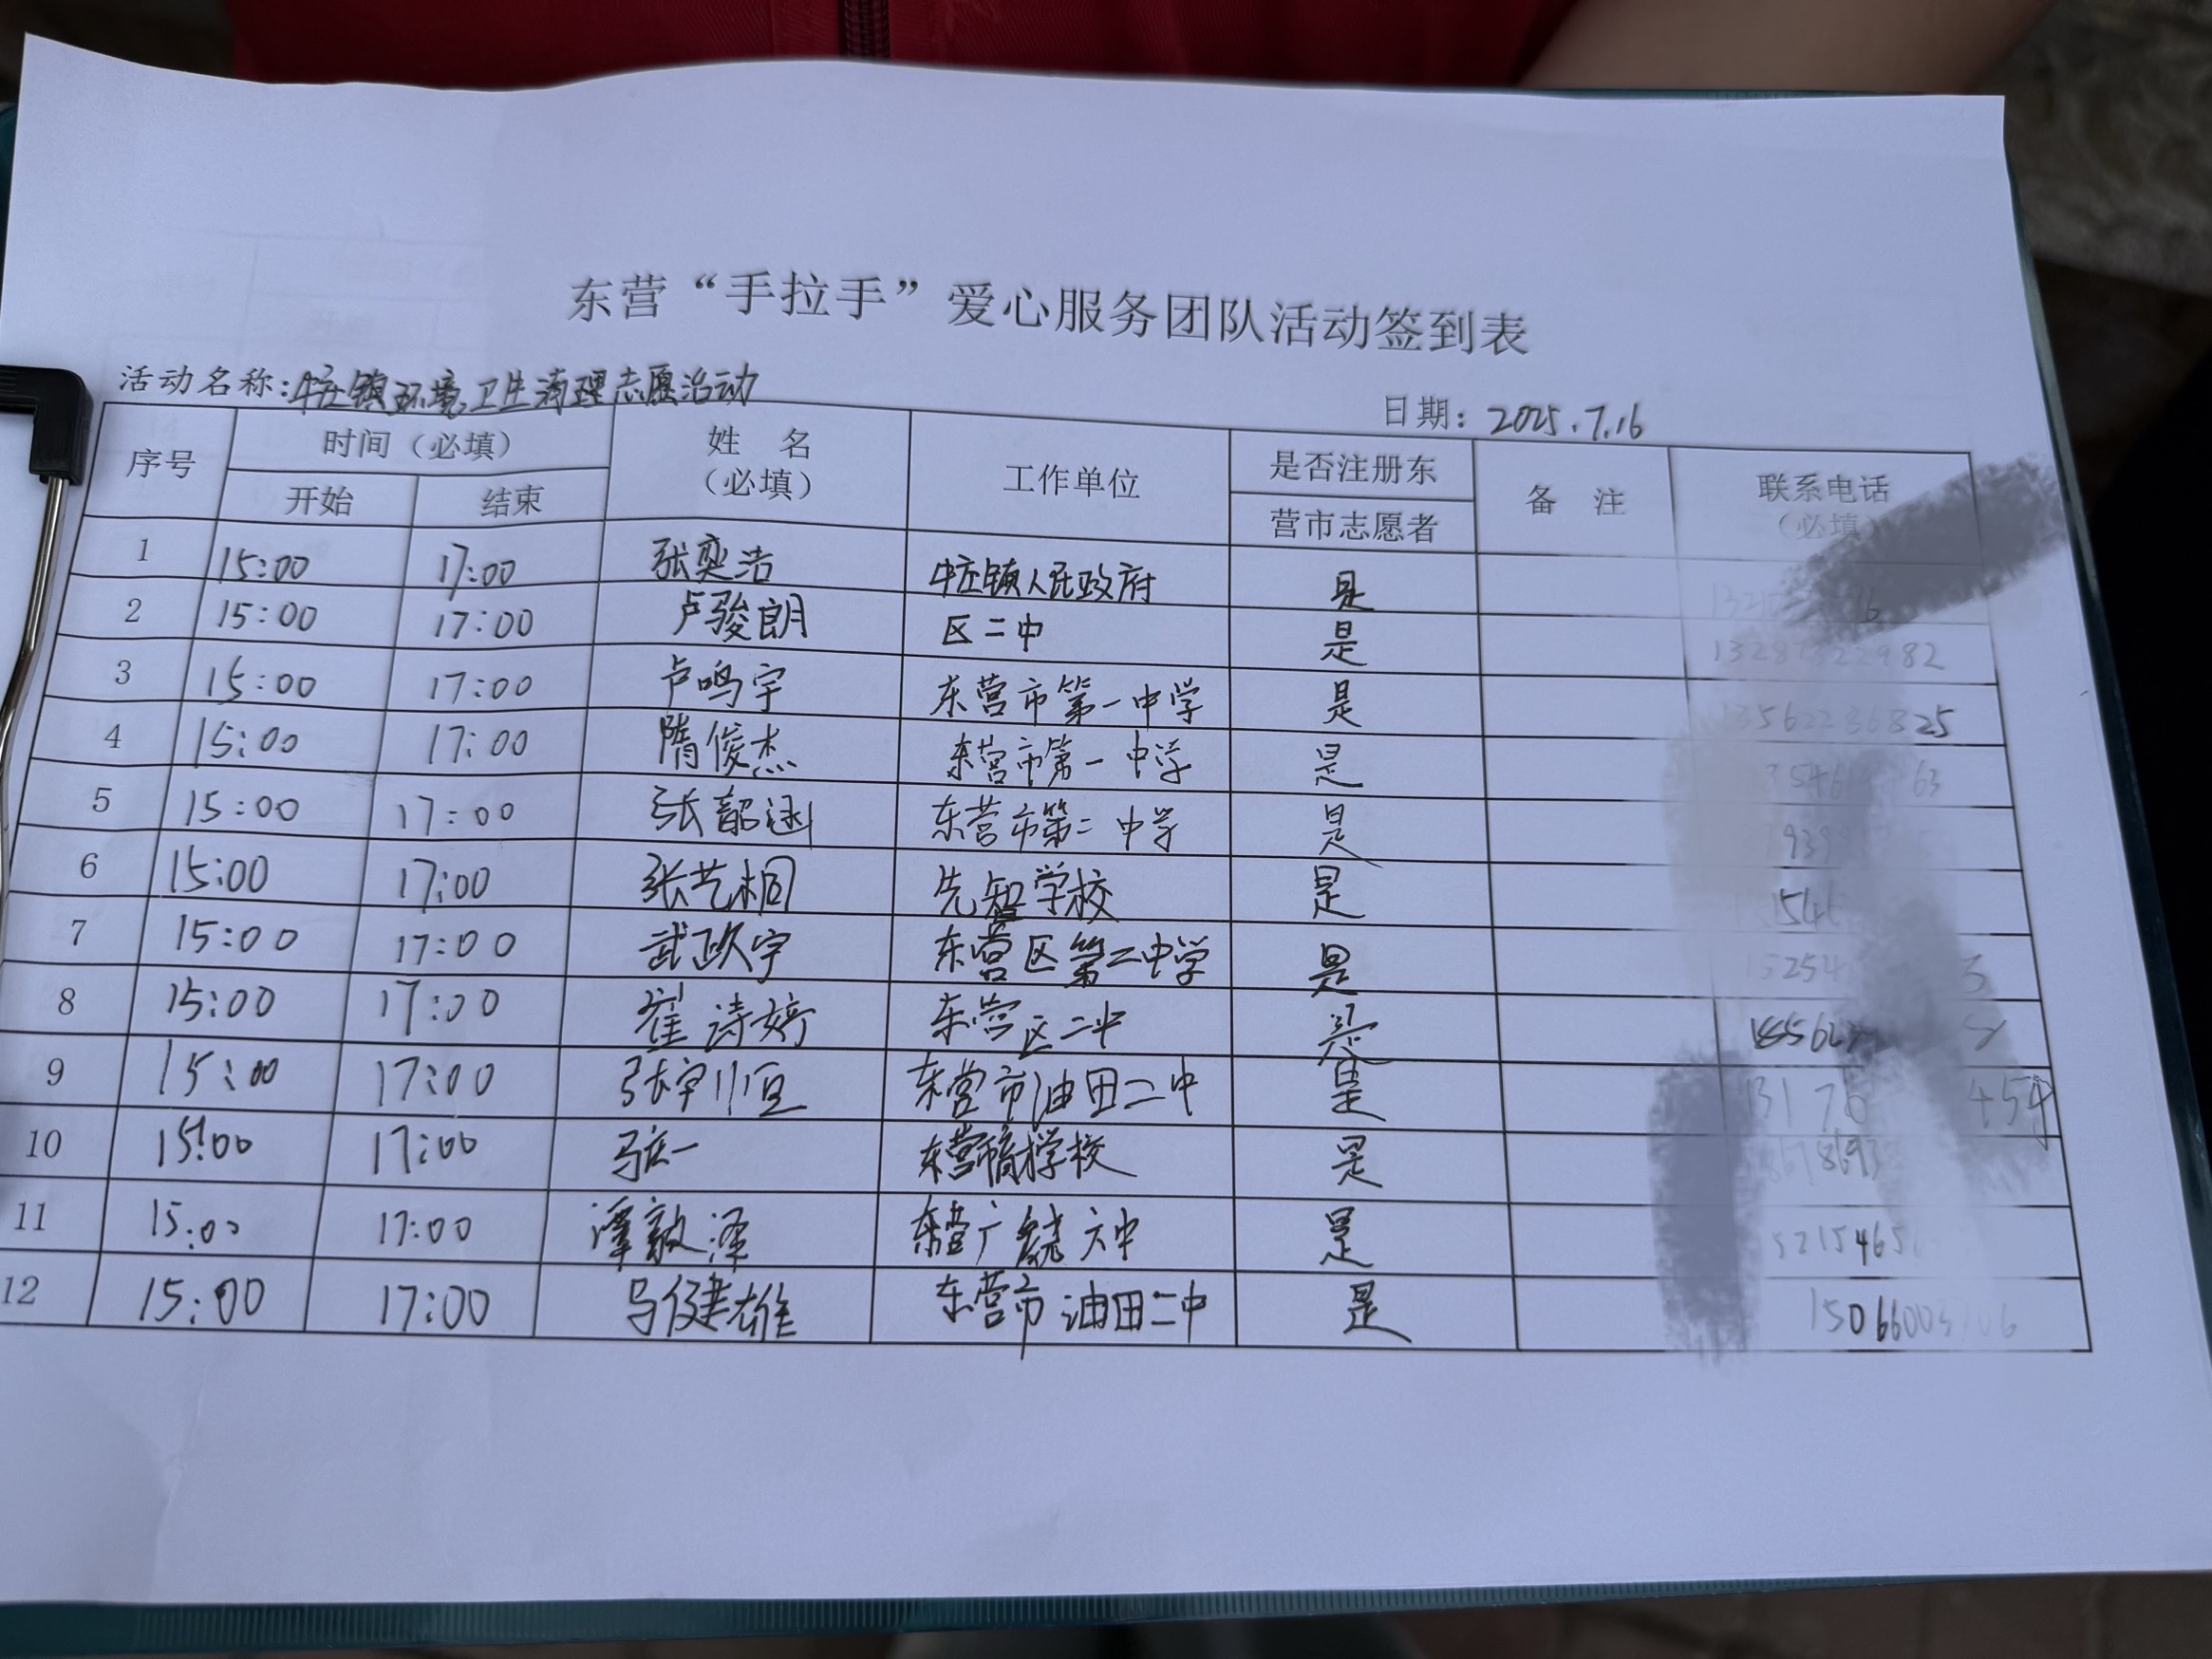 东营“手拉手”爱心服务团队活动签到表
活动名称：牛庄镇环境卫生清理志愿活动 日期：2025.7.16
序号 时间（必填） 开始 结束 姓 名（必填） 工作单位 是否注册东营市志愿者 备 注 联系电话（必填）
1 15:00 17:00 张奕浩 牛庄镇人民政府 是
2 15:00 17:00 卢骏朗 区二中 是
3 15:00 17:00 卢鸣宇 东营市第一中学 是
4 15:00 17:00 隋俊杰 东营市第一中学 是
5 15:00 17:00 张韶涵 东营市第二中学 是
6 15:00 17:00 张艺桐 先智学校 是
7 15:00 17:00 武政宇 东营区第二中学 是
8 15:00 17:00 崔诗婷 东营区二中 是
9 15:00 17:00 张宇恒 东营市油田二中 是
10 15:00 17:00 马一 东营市学校 是
11 15:00 17:00 谭敦泽 东营广饶六中 是
12 15:00 17:00 马健雄 东营市油田二中 是